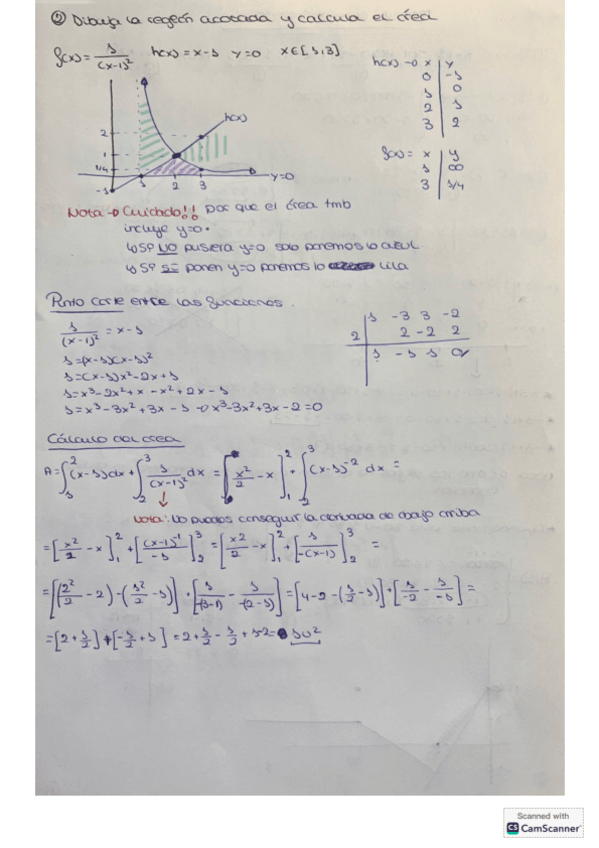 ② Dibuja la región acotada y calcula el área
f(x) = 1/(x-1)²   h(x) = x-1   y=0   x∈[1,3]
h(x) → x | y
0 | -1
1 | 0
2 | 1
3 | 2
f(x) = x | y
1 | ∞
3 | 1/4
h(x)
2
1
1/4
-1
1 2 3
y=0
Nota → Cuidado!! por que el área tmb
incluye y=0.
↳ si NO pusiera y=0 solo ponemos lo azul
↳ si SÍ ponen y=0 ponemos lo lila
Punto corte entre las funciones.
1/(x-1)² = x-1
1=(x-1)(x-1)²
1=(x-1)x²-2x+1
1=x³-2x²+x-x²+2x-1
1=x³-3x²+3x-1 → x³-3x²+3x-2=0
1 -3 3 -2
2 | 2 -2 2
1 -1 1 0
Cálculo del área
A=∫₁²(x-1)dx+∫₂³ 1/(x-1)² dx = [x²/2 - x]₁² + ∫₂³ (x-1)⁻² dx =
Nota: No puedes conseguir la derivada de abajo arriba
=[x²/2 - x]₁² + [(x-1)⁻¹/-1]₂³ = [x2/2 - x]₁² + [1/-(x-1)]₂³ =
=[(2²/2 - 2) - (1²/2 - 1)] + [1/-(3-1) - 1/-(2-1)] = [4-2-(1/2-1)] + [1/-2 - 1/-1] =
=[2+1/2] + [-1/2+1] = 2+1/2-1/2+1-2= 1u²
Scanned with
CS CamScanner